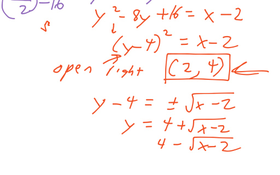 (‾/2)-16 y²-8y+16=x-2
s
(y-4)²=x-2
open right (2,4)
y-4=±√x-2
y=4+√x-2
4-√x-2